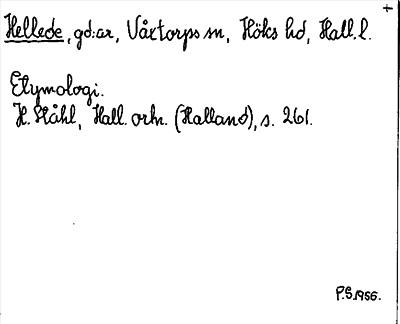 +
Hellede, gd:ar, Vårtorps sn, Höks hd, Hall. l.
Etymologi.
H. Ståhl, Hall. ortn. (Halland), s. 261.
P.S. 1956.